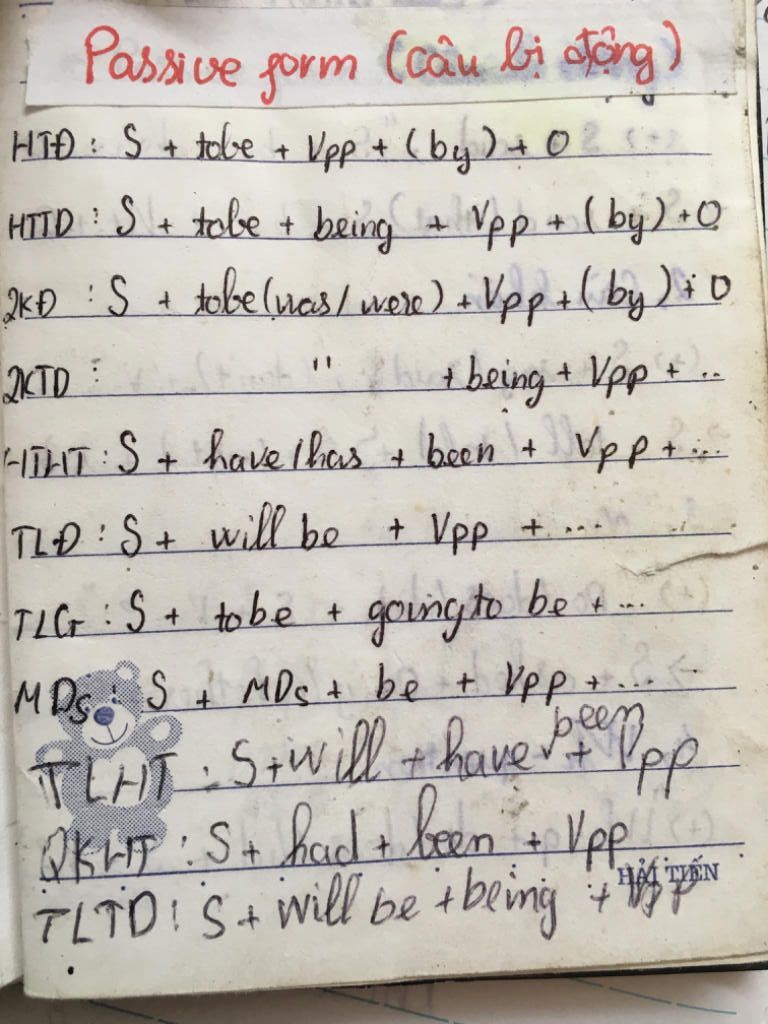 Passive form (câu bị động)
HTĐ : S + tobe + Vpp + (by) + O
HTTD : S + tobe + being + Vpp + (by) + O
QKĐ : S + tobe (was/were) + Vpp + (by) + O
QKTD : " + being + Vpp + ..
HTHT : S + have/has + been + Vpp + ...
TLĐ : S + will be + Vpp + ...
TLG : S + to be + going to be + ...
MDs : S + MDs + be + Vpp + ...
been
TLHT : S + will + have √ + Vpp
QKHT : S + had + been + Vpp
HẢI TIẾN
TLTD : S + will be + being + Vpp